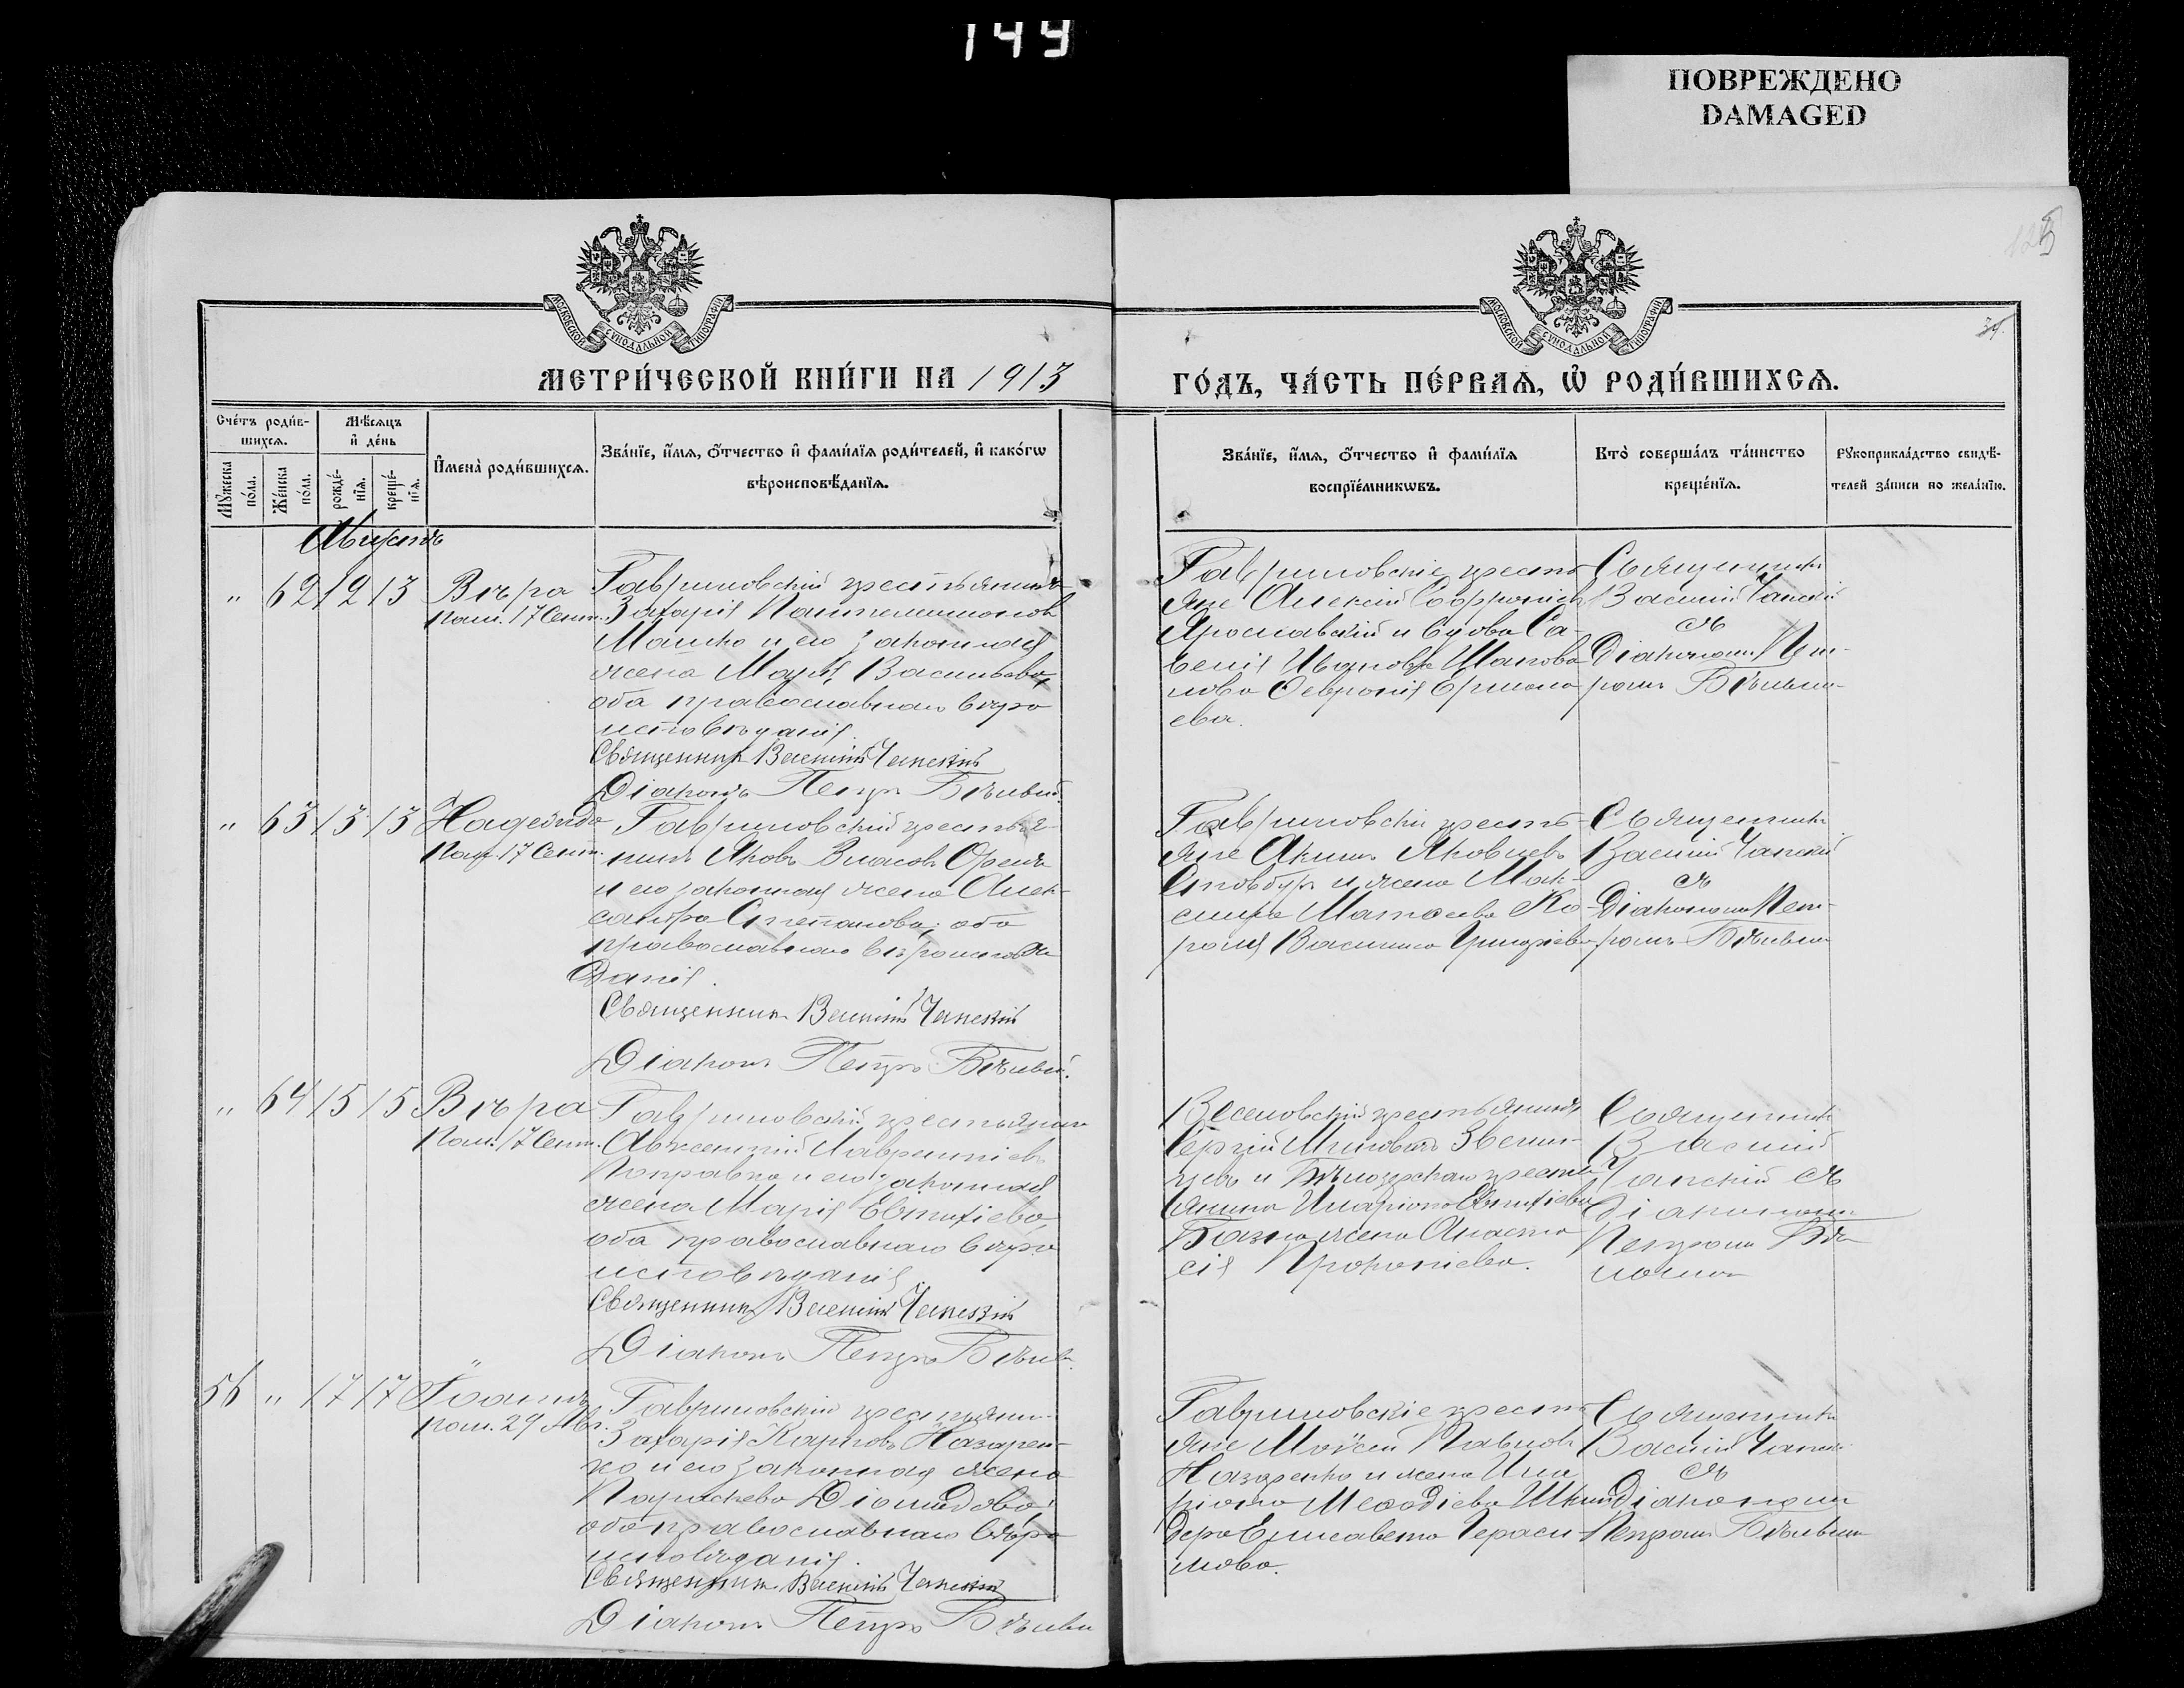 149
ПОВРЕЖДЕНО
DAMAGED
34.
МОСКОВСКОЙ СѴНОДАЛЬНОЙ ТИПОГРАФІИ
МОСКОВСКОЙ СѴНОДАЛЬНОЙ ТИПОГРАФІИ
МЕТРИ́ЧЕСКОЙ КНИ́ГИ НА 1913
ГО́ДЪ, ЧА́СТЬ ПЕ́РВАѦ, Ѡ҆ РОДИ́ВШИХСѦ.
Сче́тъ роди́в-
шихсѧ.
Мѣ́сѧцъ
и҆ де́нь
Мꙋ́жеска
по́ла.
Же́нска
по́ла.
рожде́-
нїѧ.
креще́-
нїѧ.
И҆мена̀ роди́вшихсѧ.
Зва́нїе, и҆́мѧ, ѻ҆́тчество и҆ фами́лїѧ роди́телей, и҆ како́гѡ
вѣроисповѣ́данїѧ.
Зва́нїе, и҆́мѧ, ѻ҆́тчество и҆ фами́лїѧ
воспрїе́мникѡвъ.
Кто̀ соверша́лъ та́инство
креще́нїѧ.
Рꙋкоприкла́дство свидѣ́-
телей за́писи по жела́нїю.
Августъ
" 62 12 13 Вѣра
пош. 17 Сент.
Гавриловскій крестьянинъ
Захарія Пантелеимоновъ
Машко и его законная
жена Марія Васильева,
оба православнаго вѣро
исповѣданія.
Священникъ Василій Чапскій
Діаконъ Петръ
Гавриловскіе кресть
яне Алексій Софроніевъ
Ярославскій и вдова Са-
Иванова
Февронія Ермола
ева.
Священникъ
Василій Чапскій
съ
Діакономъ Пет-
ромъ
" 63 13 13 Надежда
17 Сент.
Гавриловскій крестья-
нинъ Яковъ Власовъ
и его законная жена Алек-
сандра Степанова; оба
православнаго вѣроисповѣ
данія.
Священникъ Василій Чапскій
Діаконъ Петръ
Гавриловскіе кресть-
яне Акимъ Яковлевъ
и жена Мак-
сима
Василиса Григоріева
Священникъ
Василій Чапскій
съ
Діакономъ Пет-
ромъ
" 64 15 15 Вѣра
пош. 17 Сент.
Гавриловскій крестьянинъ
Авксентій Лаврентіевъ
Поправко и его законная
жена Марія Евтихіева,
оба православнаго вѣро
исповѣданія
Священникъ Василій Чапскій
Діаконъ Петръ
Веселовскій крестьянинъ
и Бѣлозерскаго кресть
янина Иларіона Евтихіева
жена Анаста
сія Прокопіева.
Священникъ
Василій
Чапскій съ
Діакономъ
Петромъ
56 " 17 17 Іоаннъ
пош. 29 Авг.
Гавриловскій крестьянинъ
Захарія Карповъ Назарен-
ко и его законная жена
Параскева Діомидова;
оба православнаго вѣро
исповѣданія.
Священникъ Василій Чапскій
Діаконъ Петръ
Гавриловскіе кресть
яне Моѵсей Павловъ
Назаренко и жена Ила
ріона Меѳодіева
Елисавета Гераси
мова.
Священникъ
Василій Чапскій
съ
Діакономъ
Петромъ